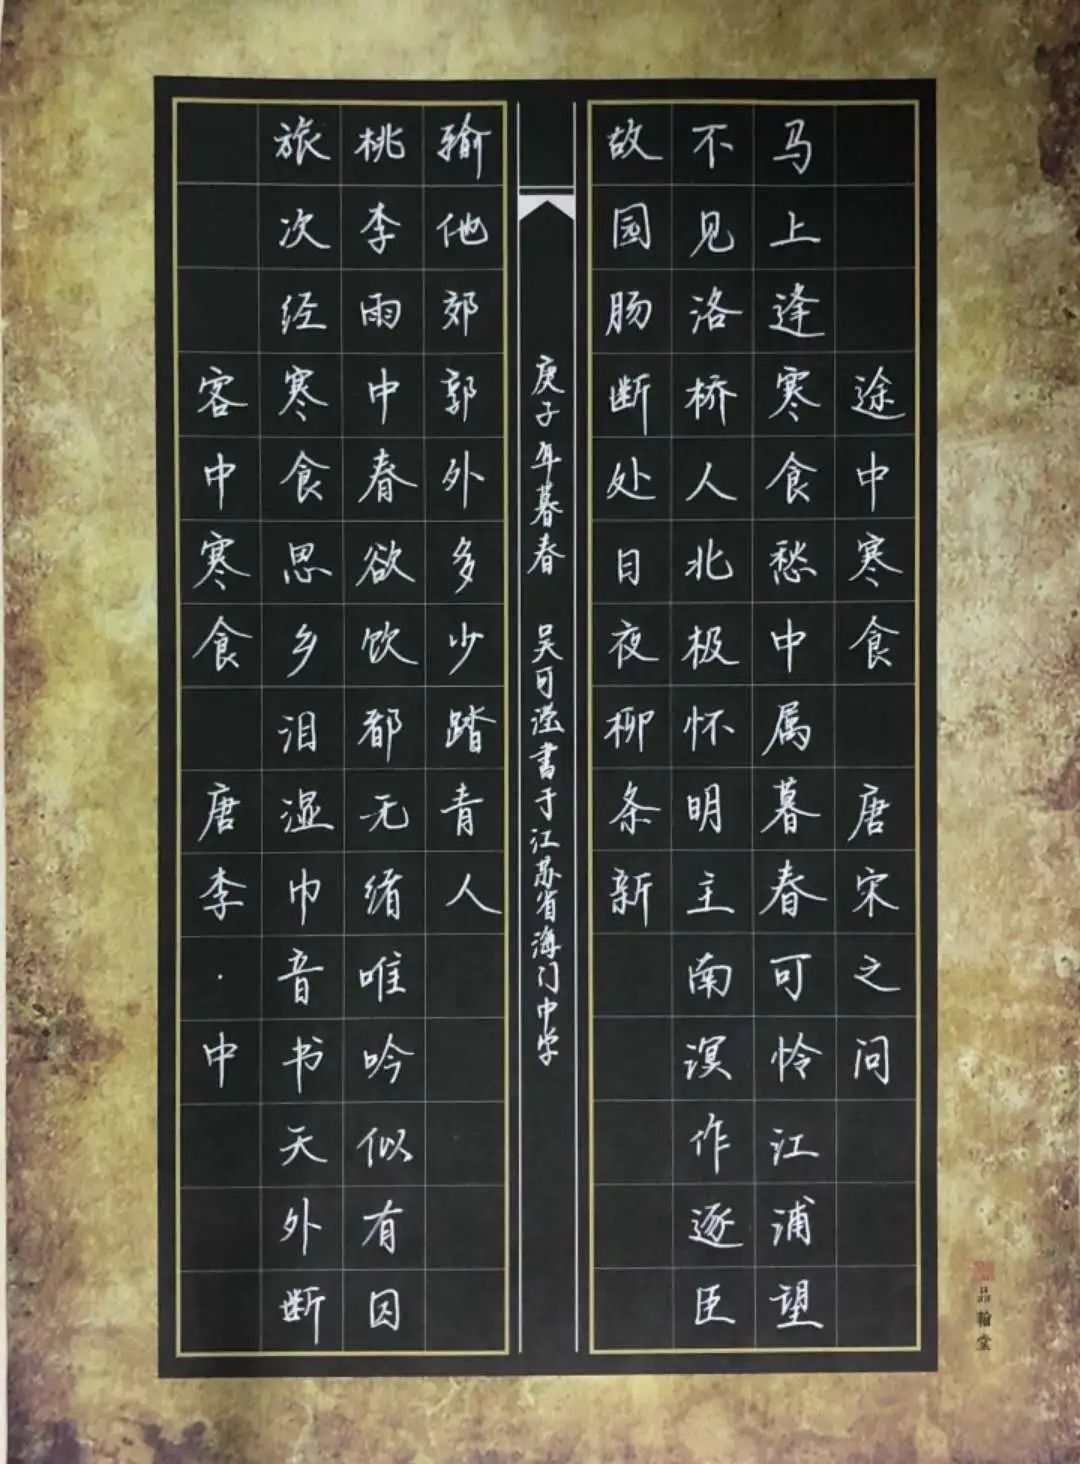 途中寒食 唐宋之问
马上逢寒食愁中属暮春可怜江浦望
不见洛桥人北极怀明主南溟作逐臣
故园肠断处日夜柳条新
庚子年暮春 吴可滢书于江苏省海门中学
客中寒食 唐李·中
旅次经寒食思乡泪湿巾音书天外断
桃李雨中春欲饮都无绪唯吟似有因
输他郊郭外多少踏青人
品翰堂